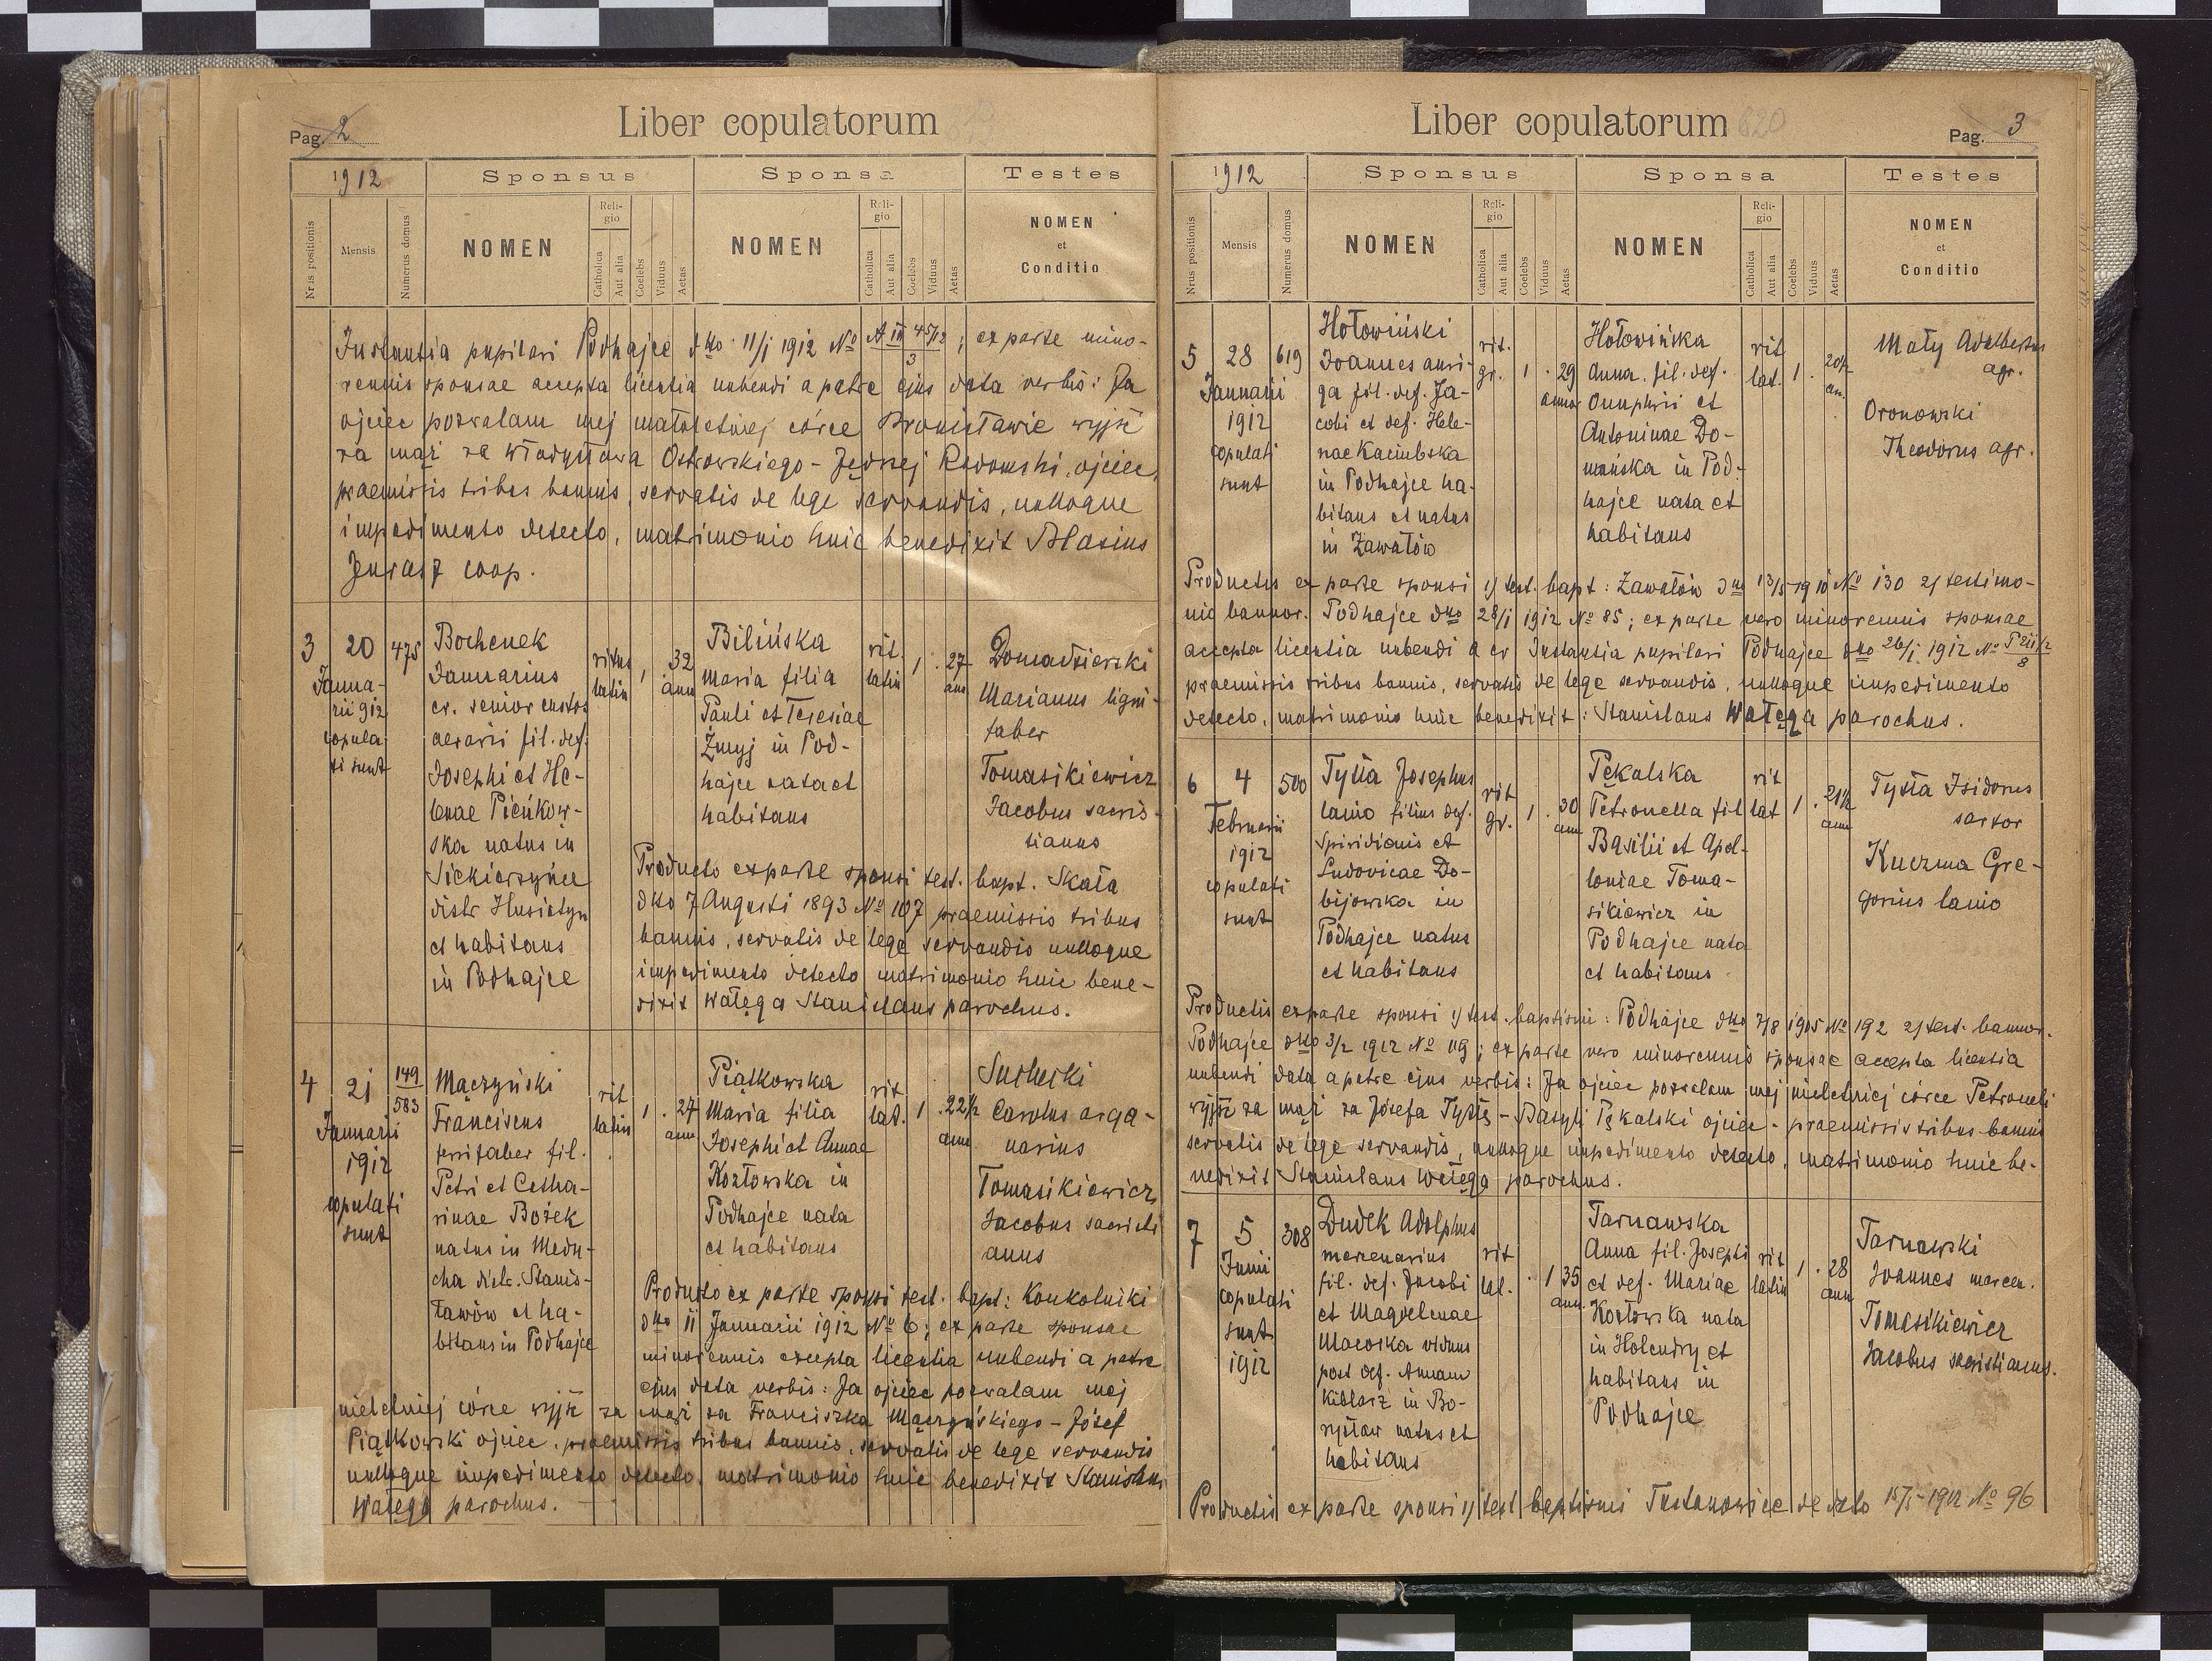 Pag. 2
Liber copulatorum
1912
Sponsus
Sponsa
Testes
Nrus positionis
Mensis
Numerus domus
NOMEN
Religio
Catholica
Aut alia
Coelebs
Viduus
Aetas
NOMEN
Religio
Catholica
Aut alia
Coelebs
Viduus
Aetas
NOMEN
et
Conditio
Instantia pupilari Podhajce dtto 11/I 1912 No ; ex parte mino-
rennis sponsae accepta licentia nubendi a patre ejus data verbis: Ja
ojciec pozwalam mej małoletniej córce Bronisławie wyjść
za mąż za Władysława Ostrowskiego - Jędrzej Radomski, ojciec,
praemissis tribus bannis, servatis de lege servandis, nulloque
impedimento detecto, matrimonio huic benedixit Blasius
Jurasz coop.
3
20
Janua-
rii 912
copula-
ti sunt
475
Bochenek
Januarius
cr. senior custos
aerarii fil. def.
Josephi et He-
lenae Pieńkow-
ska natus in
Sickierzyńce
distr Husiatyn
et habitans
in Podhajce
ritus
latin
1
32
ann
Bilińska
Maria filia
Pauli et Teresiae
Żmyj in Pod-
hajce nata et
habitans
rit.
latin
1
27
ann
Domadzierski
Marianus ligni-
faber
Tomasikiewicz
Jacobus sacris-
tianus
Producto ex parte sponsi test. bapt. Skała
dtto 7 Augusti 1893 No 107 praemissis tribus
bannis, servatis de lege servandis nulloque
impedimento detecto matrimonio huic bene-
dixit Wałęga Stanislaus parochus.
4
21
Januarii
1912
copulati
sunt
149
583
Mączyński
Franciscus
ferrifaber fil.
Petri et Catha-
rinae Bożek
natus in Medu-
cha distr. Stanis-
ławów et ha-
bitans in Podhajce
rit
latin
1
27
ann
Piątkowska
Maria filia
Josephi et Annae
Kozłowska in
Podhajce nata
et habitans
rit
lat.
1
22½
ann
Suchecki
Carolus orga-
narius
Tomasikiewicz
Jacobus sacristi
anus
Producto ex parte sponsi test. bapt: Konkolniki
dtto 11 Januarii 1912 No 6; ex parte sponsae
minorennis accepta licentia nubendi a patre
ejus data verbis: Ja ojciec pozwalam mej
nieletniej córce wyjść za mąż za Franciszka Mączyńskiego - Józef
Piątkowski ojciec. praemissis tribus bannis, servatis de lege servandis
nulloque impedimento detecto, matrimonio huic benedixit Stanislaus
Wałęga parochus.
Liber copulatorum 620
Pag. 3
1912
Sponsus
Sponsa
Testes
Nrus positionis
Mensis
Numerus domus
NOMEN
Religio
Catholica
Aut alia
Coelebs
Viduus
Aetas
NOMEN
Religio
Catholica
Aut alia
Coelebs
Viduus
Aetas
NOMEN
et
Conditio
5
28
Januarii
1912
copulati
sunt
619
Hołowiński
Joannes auri-
ga fil. def. Ja-
cobi et def. Hele-
nae
in Podhajce ha-
bitans et natus
in Zawałów
rit.
gr.
1
29
annor
Hołowińska
Anna. fil. def.
Onuphrii et
Antoninae Do-
mańska in Pod-
hajce nata et
habitans
rit
lat.
1
20½
an.
Mały Adalbertus
agr.
Oronowski
Theodorus agr.
Productis ex parte sponsi 1) test. bapt: Zawałów dtto 13/5 1910 No 130 2) testimo-
nio bannor. Podhajce dtto 28/I 1912 No 85; ex parte vero minorennis sponsae
accepta licentia nubendi a cr Instantia pupilari Podhajce dtto 26/I. 1912 No
praemissis tribus bannis, servatis de lege servandis, nulloque impedimento
detecto, matrimonio huic benedixit: Stanislaus Wałęga parochus.
6
4
Februarii
1912
copulati
sunt
500
Tysła Josephus
lanio filius def.
Spiridionis et
Ludovicae Do-
bijowska in
Podhajce natus
et habitans
rit
gr.
1
30
ann
Pękalska
Petronella fil
Basilii et Apol-
loniae Toma-
sikiewicz in
Podhajce nata
et habitans
rit
lat
1
21½
ann
Tysła Isidorus
sartor
Kuczma Gre-
gorius lanio
Productis ex parte sponsi 1) test. baptismi: Podhajce dtto 7/8 1905 No 192 2) test. bannor.
Podhajce dtto 3/2 1912 No 119; ex parte vero minorennis sponsae accepta licentia
nubendi data a patre ejus verbis: Ja ojciec pozwalam mej nieletniej córce Petroneli
wyjść za mąż za Józefa Tysłę - Basyli Pękalski ojciec - praemissis tribus bannis
servatis de lege servandis, nulloque impedimento detecto, matrimonio huic be-
nedixit Stanislaus Wałęga parochus.
7
5
Junii
copulati
sunt
1912
308
Dudek Adolphus
mercenarius
fil. def. Jacobi
et Magdelenae
Macoska viduus
post def. Annam
Kiblarz in Bo-
rysław natus et
habitans
rit
lat.
1
35
ann.
Tarnawska
Anna fil. Josephi
et def. Mariae
Kozłowska nata
in Holendry et
habitans in
Podhajce
rit
latin
1
28
ann
Tarnawski
Joannes mercen.
Tomasikiewicz
Jacobus sacristianus.
Productis ex parte sponsi 1) test baptismi Tustanowice de dato 15/5 1912 No 96